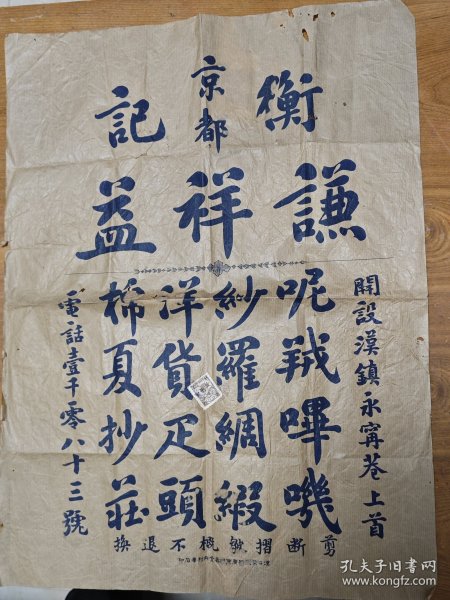 京都
衡記
謙祥益
開設漢鎮永甯巷上首
呢羢嗶嘰
紗羅綢緞
洋貨疋頭
棉夏抄莊
電話壹千零八十三號
剪斷摺皺概不退換
孔夫子旧书网
book.kongfz.com